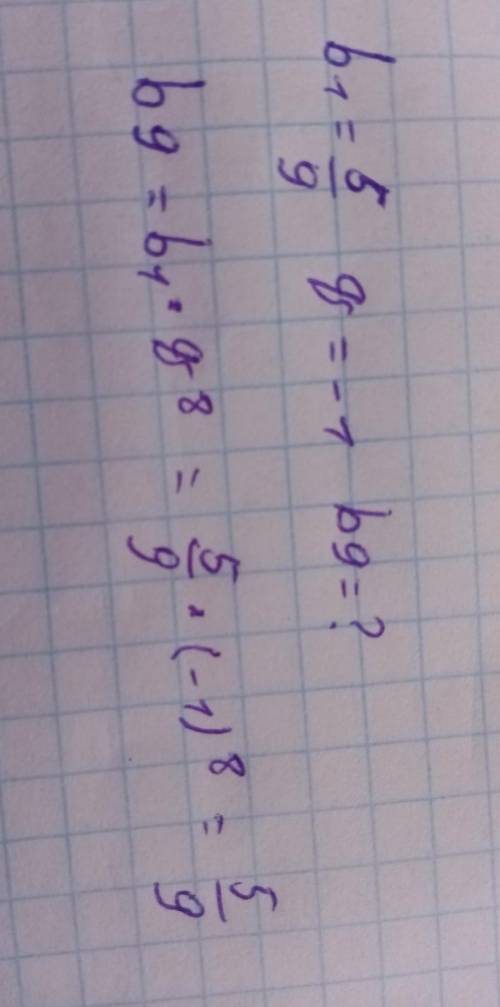 b₁ = 5/9 q = -1 b₉ = ?
b₉ = b₁ · q⁸ = 5/9 · (-1)⁸ = 5/9